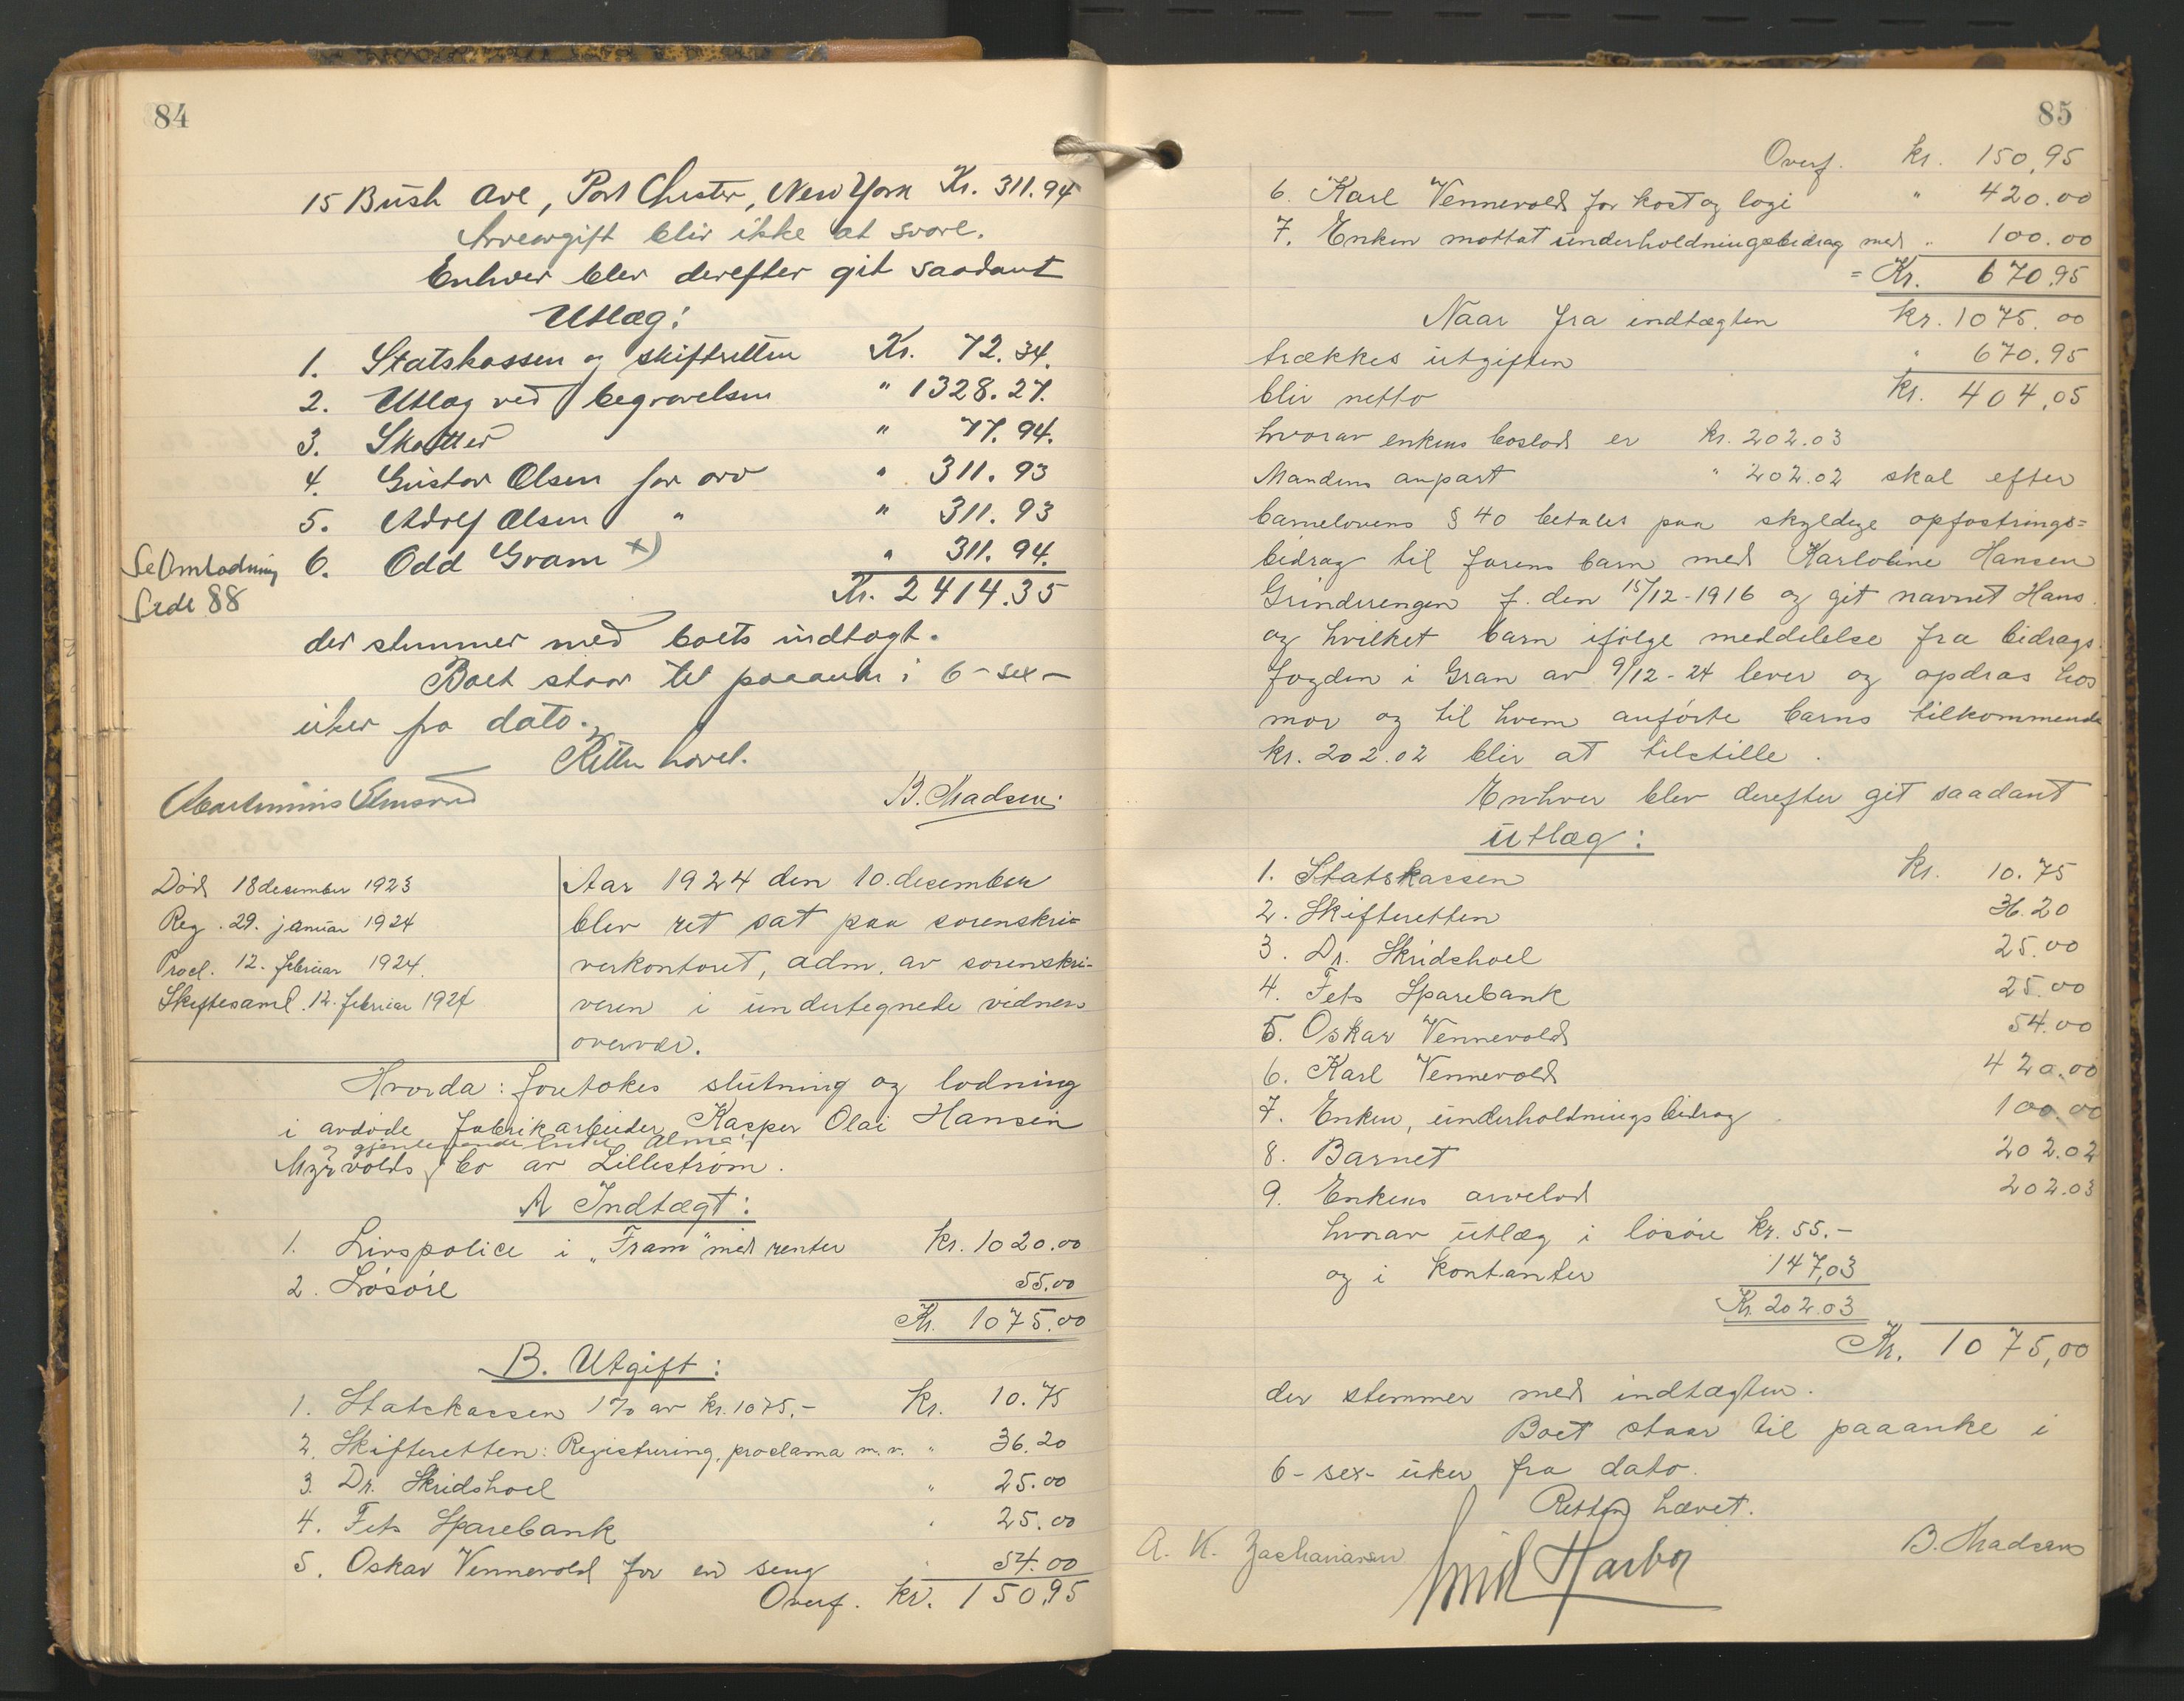 84
15 Bush Ave, Port Chester, New York Kr. 311.94
Arveavgift blir ikke at svare.
Enhver blev derefter git saadant
Utlæg:
1. Statskassen og skifteretten Kr. 72.34.
2. Utlæg ved begravelsen " 1328.27.
3. Skatter " 77.94.
4. Gustav Olsen for arv " 311.93
5. Adolf Olsen " " 311.93
Se Omlodning
Side 88
6. Odd Gram x) " 311.94.
Kr. 2414.35
der stemmer med boets indtægt.
Boet staar til paaanke i 6 - sex -
uker fra dato.
Retten hævet.
B. Madsen.
Død 18 desember 1923
Reg. 29. januar 1924
Procl. 12. februar 1924.
Skiftesaml. 12. februar 1924
Aar 1924 den 10. desember
blev ret sat paa sorenskri=
verkontoret, adm. av sorenskri-
veren i undertegnede vidners
overvær.
Hvorda: foretokes slutning og lodning
i avdøde fabrikarbeider Kasper Olai Hansen
og gjenlevende enke Alma
Myrvolds bo av Lillestrøm.
A Indtægt:
1. Livspolice i „Fram" med renter kr. 1020.00
2. Løsøre 55.00
Kr. 1075.00
B. Utgift:
1. Statskassen 1% av kr. 1075.- Kr. 10.75
2. Skifteretten: Registrering, proclama m.v. " 36.20
3. Dr. Skridshol " 25.00
4. Fets Sparebank " 25.00
5. Oskar Vennevold for en seng " 54.00
Overf. kr. 150.95
85
Overf. kr. 150,95
6. Karl Vennevold for kost og logi " 420.00
7. Enken mottat underholdningsbidrag med " 100.00
= Kr. 670.95
Naar fra indtægten kr. 1075.00
trækkes utgiften " 670.95
blir netto kr. 404,05
hvorav enkens boslod er kr. 202.03
Mandens anpart " 202.02 skal efter
barnelovens § 40 betales paa skyldige opfostrings=
bidrag til farens barn med Karloline Hansen
Grinderengen f. den 15/12-1916 og git navnet Hans
og hvilket barn ifølge meddelelse fra bidrags
fogden i Gran av 9/12-24 lever og opdras hos
mor og til hvem anførte barns tilkommende
kr. 202.02 blir at tilstille.
Enhver blev derefter git saadant
utlæg:
1. Statskassen Kr. 10.75
2. Skifteretten 36.20
3. Dr. Skridshol 25.00
4. Fets Sparebank 25.00
5. Oskar Vennevold 54.00
6. Karl Vennevold 420.00
7. Enken, underholdningsbidrag 100.00
8. Barnet 202.02
9. Enkens arvelod 202.03
hvorav utlæg i løsøre kr. 55.-
og i kontanter 147,03
Kr. 202.03
Kr. 1075,00
der stemmer med indtægten.
Boet staar til paaanke i
6 - sex - uker fra dato.
Retten hævet.
A. K. Zachariassen
Emil Harboe
B. Madsen